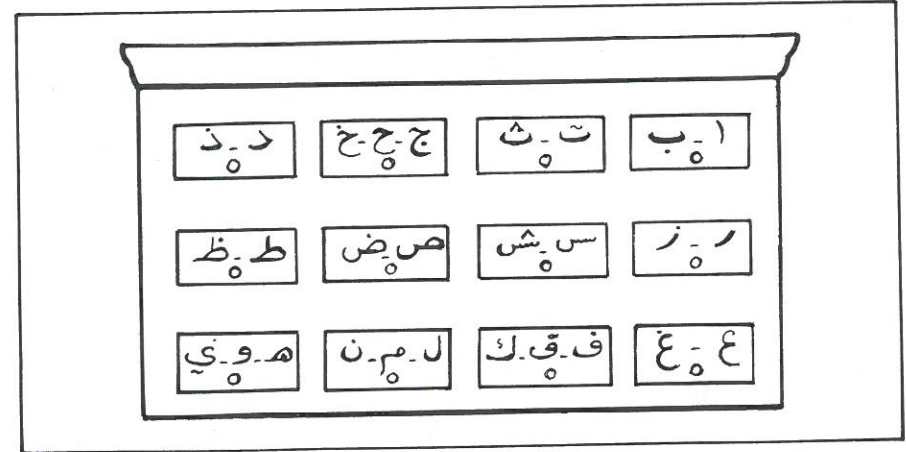 ا - ب
ت - ث
ج - ح - خ
د - ذ
ر - ز
س - ش
ص - ض
ط - ظ
ع - غ
ف - ق - ك
ل - م - ن
هـ - و - ي